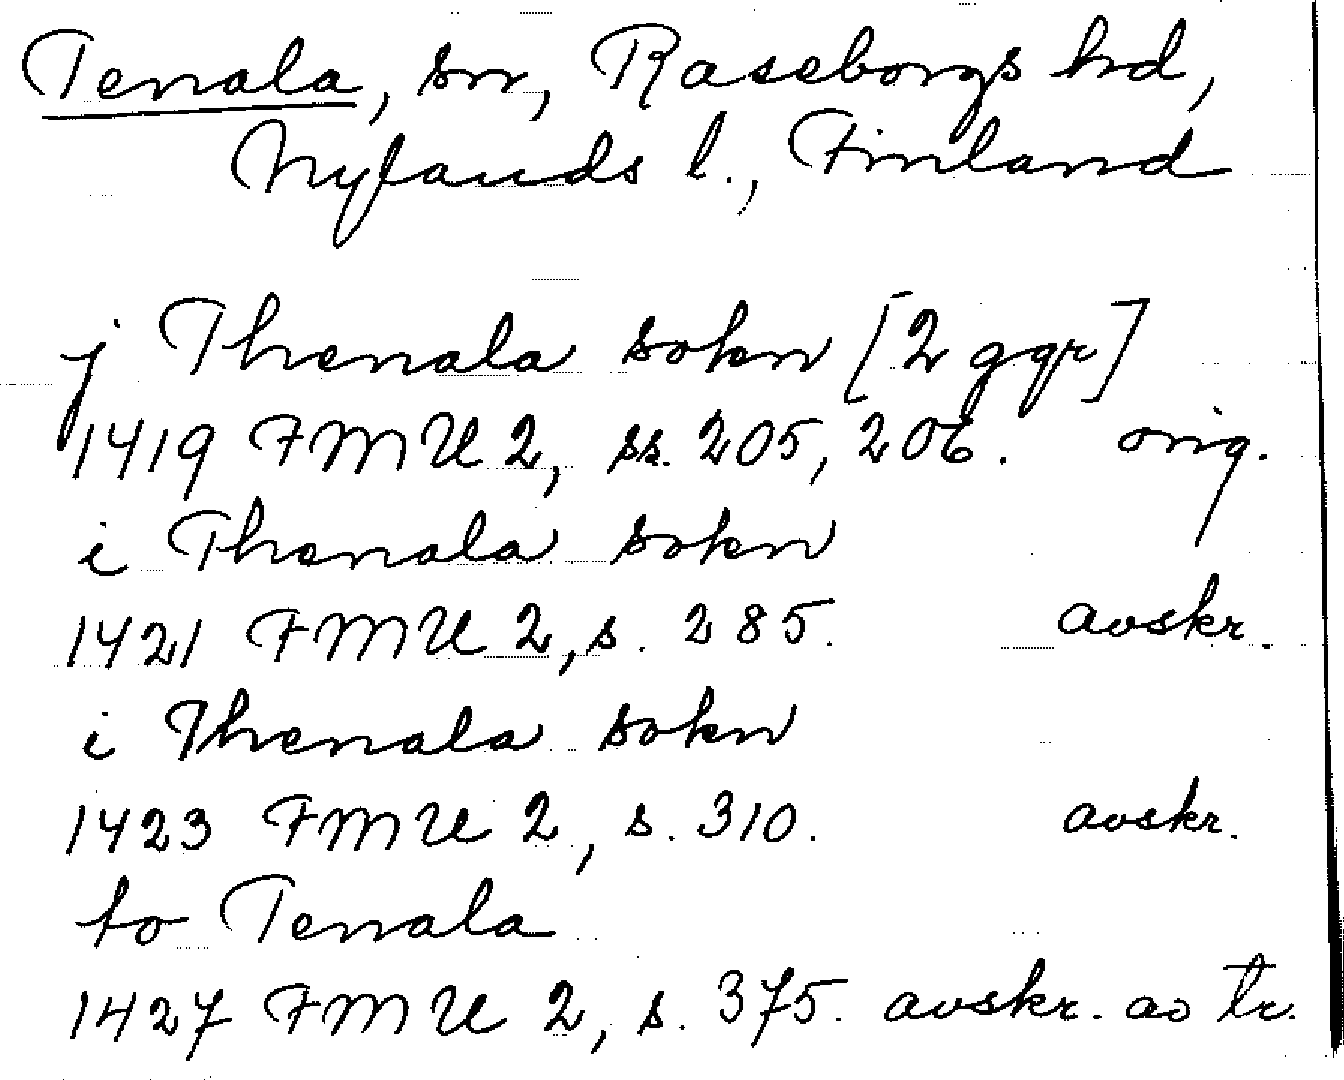 Tenala, sn, Raseborgs hd,
Nylands l., Finland
j Thenala sokn [2 ggr]
1419 FMU 2, ss. 205, 206. orig.
i Thenala sokn
1421 FMU 2, s. 285. avskr.
i Thenala sokn
1423 FMU 2, s. 310. avskr.
to Tenala
1427 FMU 2, s. 375. avskr. av tr.